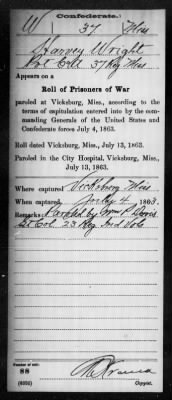 Confederate.
W 37 Miss
Harvey Wright
Pvt Co. A 37 Reg Miss
Appears on a
Roll of Prisoners of War
paroled at Vicksburg, Miss., according to the
terms of capitulation entered into by the com-
manding Generals of the United States and
Confederate forces July 4, 1863.
Roll dated Vicksburg, Miss., July 13, 1863.
Paroled in the City Hospital, Vicksburg, Miss.,
July 13, 1863.
Where captured, Vicksburg Miss
When captured, July 4, 1863.
Remarks: Paroled by Wm P. Davis
Lt Col. 23 Reg Ind Vols
Number of roll:
88
(639b) Copyist.